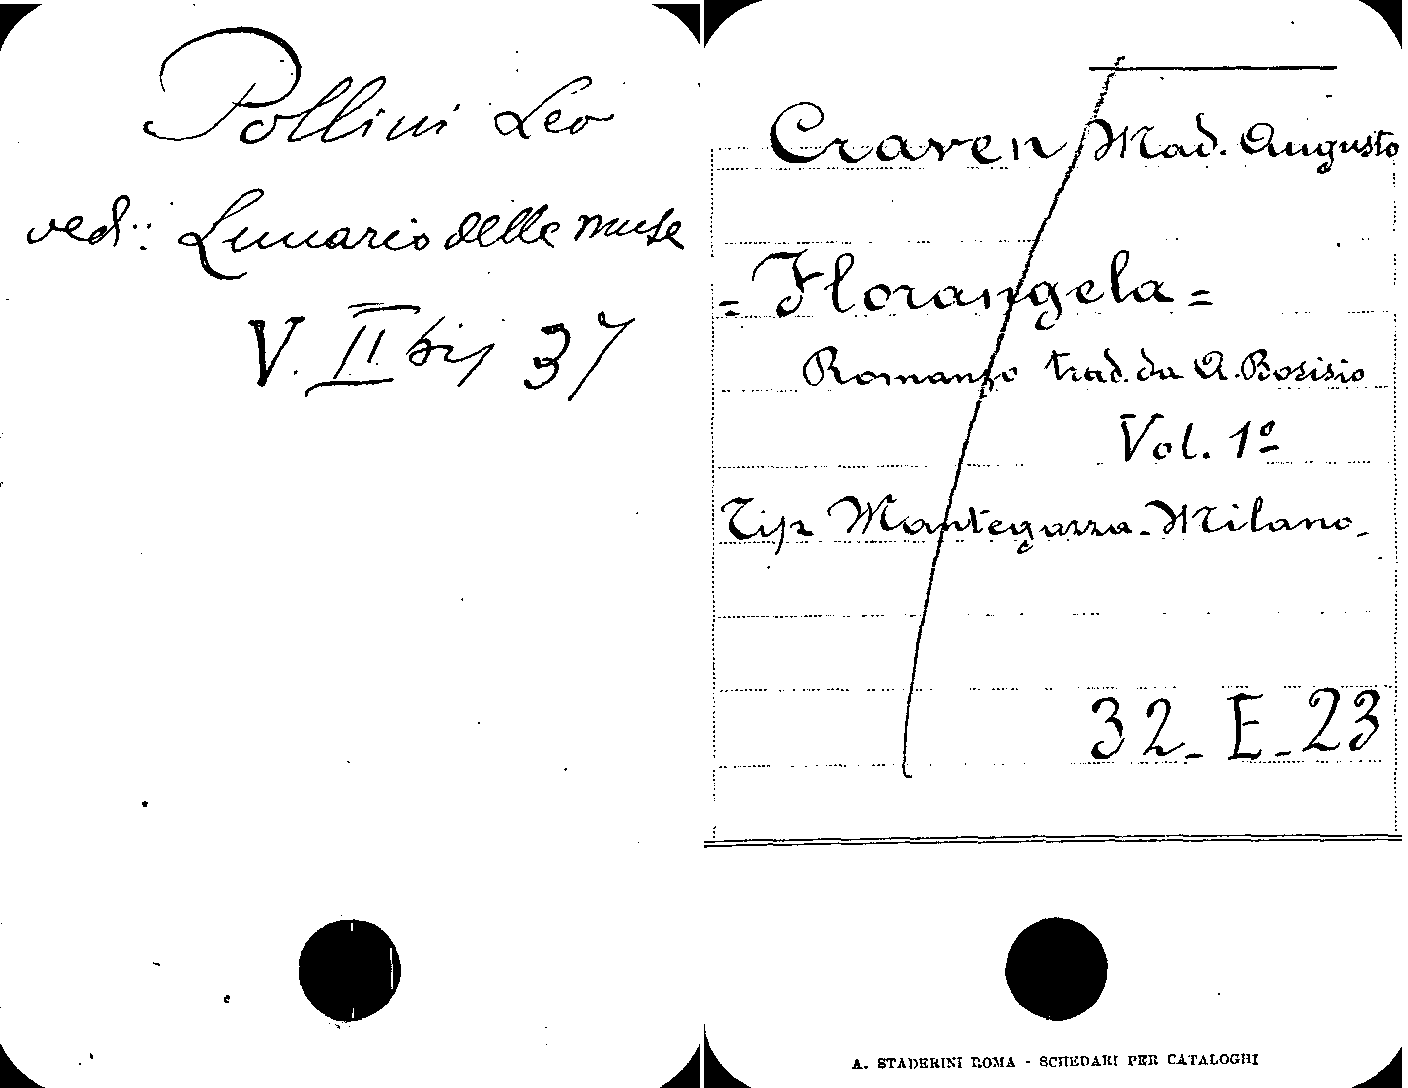 Pollini Leo
vedi: Lunario delle muse
V. II bis 37
Craven Mad. Augusto
= Florangela =
Romanzo trad. da A. Bosisio
Vol. 1º
Tip. Mantegazza - Milano -
32 - E - 23
A. STADERINI ROMA - SCHEDARI PER CATALOGHI